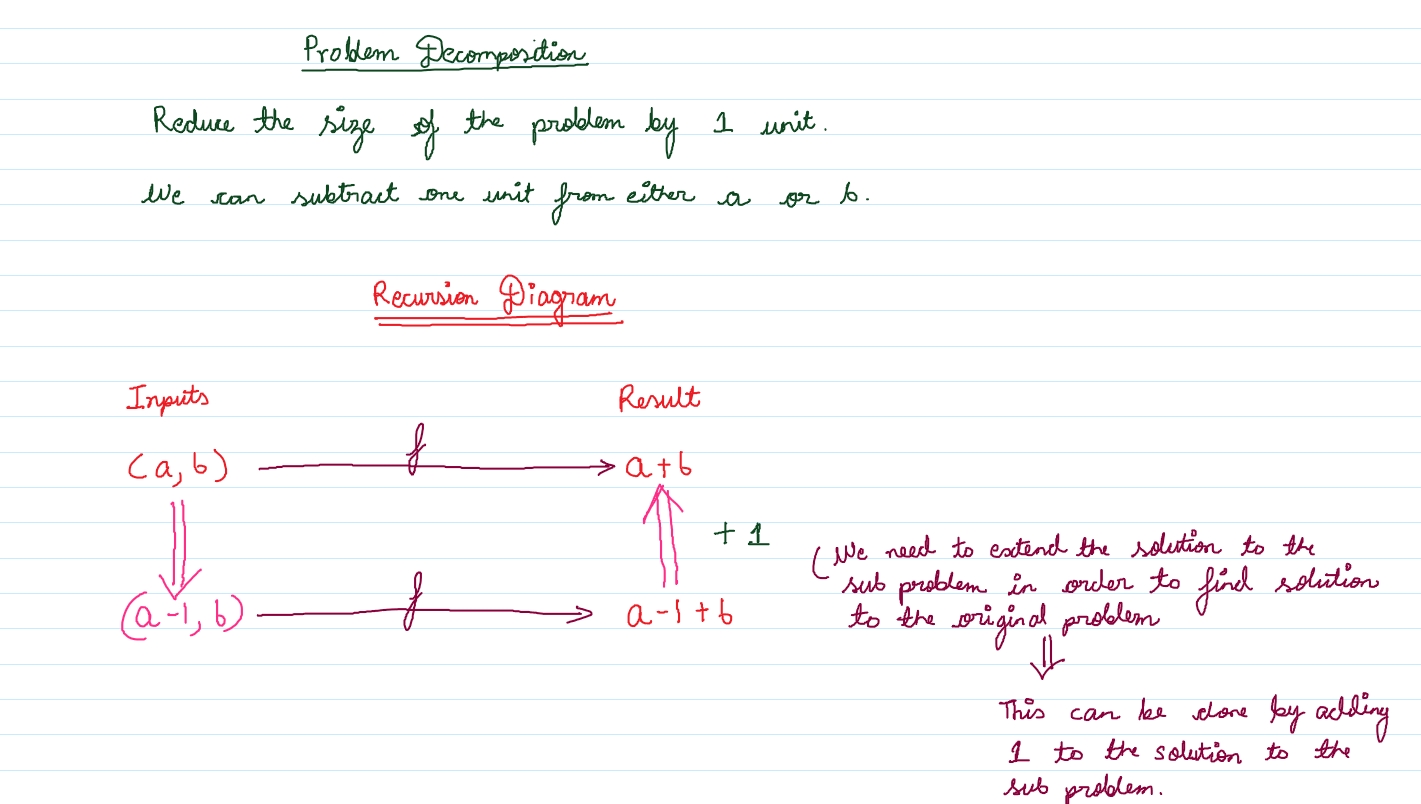 Problem Decomposition
Reduce the size of the problem by 1 unit.
We can subtract one unit from either a or b.
Recursion Diagram
Inputs Result
(a, b) f a+b
+ 1
(We need to extend the solution to the
sub problem in order to find solution
to the original problem
(a-1, b) f a-1+b
This can be done by adding
1 to the solution to the
sub problem.